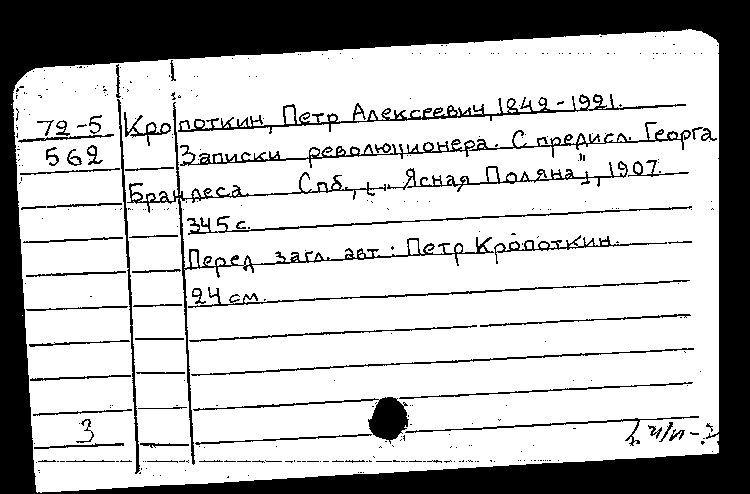 72-5 Кропоткин, Петр Алексеевич, 1842-1921.
562 Записки революционера. С предисл. Георга
Брандеса Спб., [„Ясная Поляна"], 1907.
345 с.
Перед загл. авт.: Петр Кропоткин.
24 см.
3